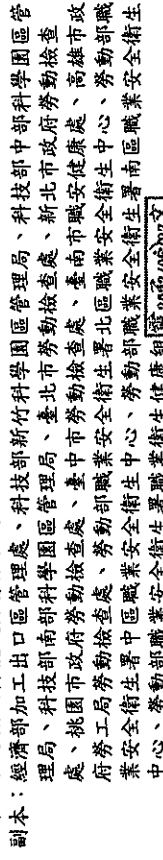 副本：經濟部加工出口區管理處、科技部新竹科學園區管理局、科技部中部科學園區管
理局、科技部南部科學園區管理局、臺北市勞動檢查處、新北市政府勞動檢查
處、桃園市政府勞動檢查處、臺中市勞動檢查處、臺南市職安健康處、高雄市政
府勞工局勞動檢查處、勞動部職業安全衛生署北區職業安全衛生中心、勞動部職
業安全衛生署中區職業安全衛生中心、勞動部職業安全衛生署南區職業安全衛生
中心、勞動部職業安全衛生署職業衛生健康組